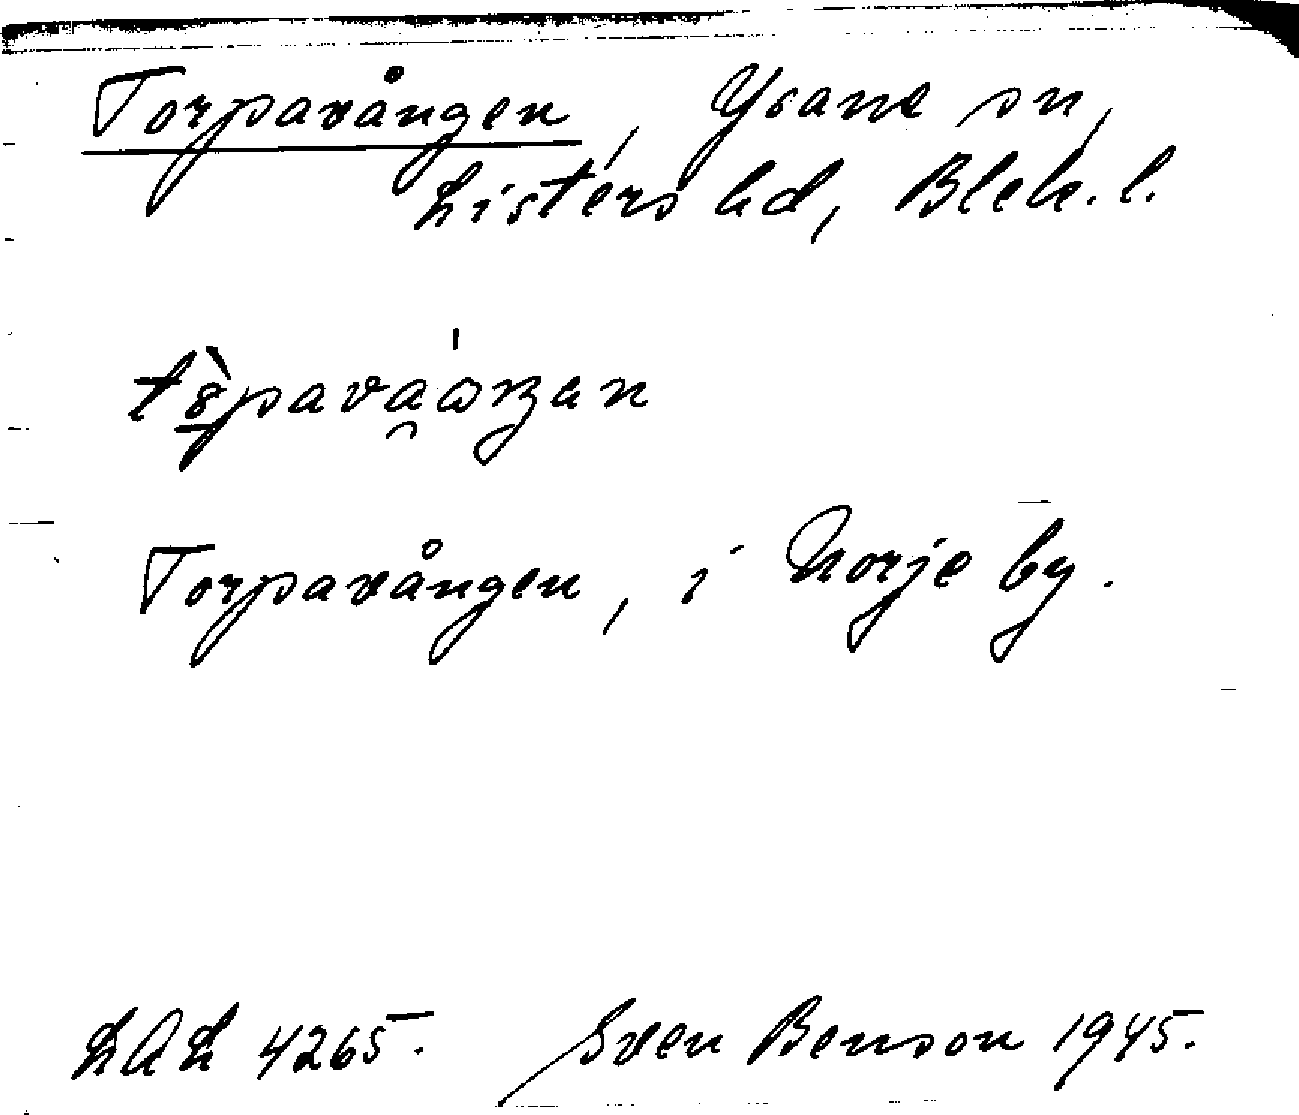 Torpavången, Ysane sn,
Listers hd, Blek. l.
Torpavången, i Norje by.
LAL 4265. Sven Benson 1945.